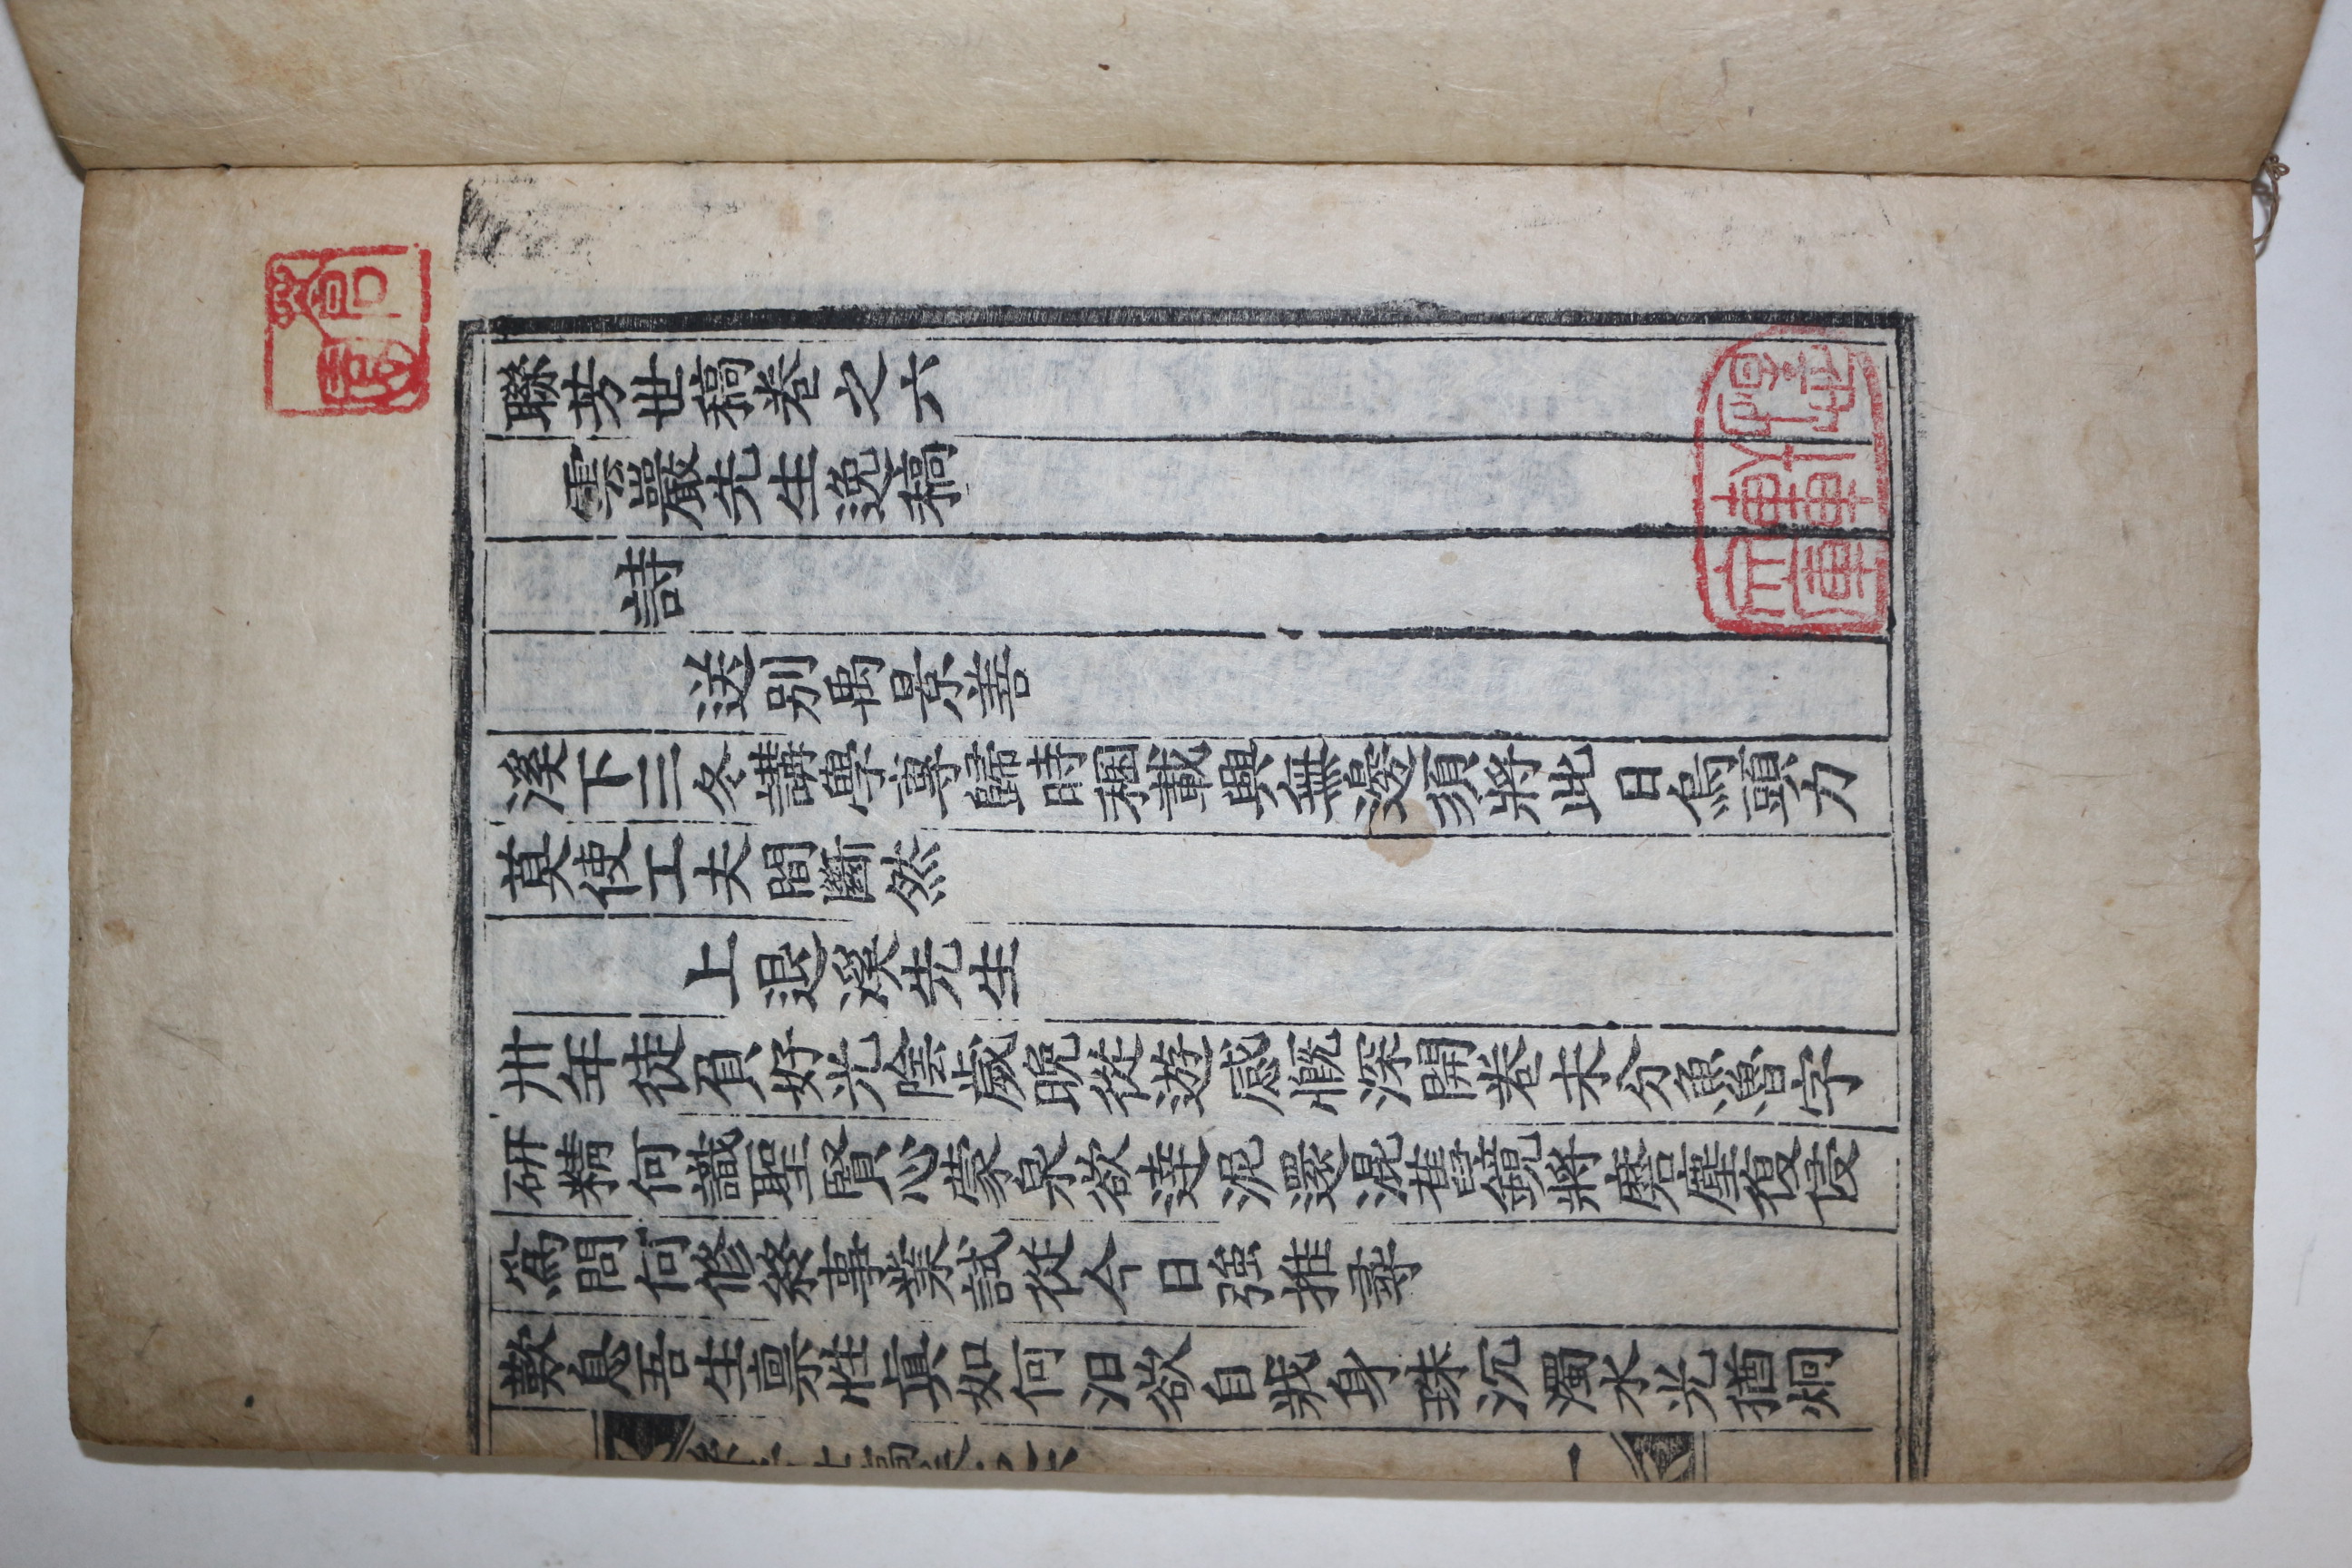 聯芳世稿卷之六
雲巖先生逸稿
詩
送別禹景善
溪下三冬講學專歸時稛載興無邊須將此日烏頭力
莫使工夫間斷然
上退溪先生
卅年徒負好光陰歲晚從遊感慨深開卷未分魚魯字
研精何識聖賢心蒙泉欲達泥還混舊鏡將磨塵復侵
爲問何修終事業試從今日強推尋
歎息吾生禀性眞如何汨欲自戕身珠沉濁水光猶炯
一
蒼園
惺軒文庫